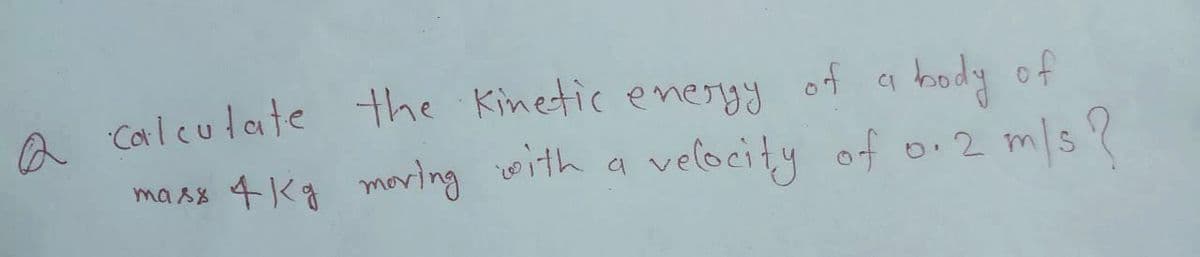 Q Calculate the Kinetic energy of a body of
mass 4 Kg moving with a velocity of 0.2 m/s?